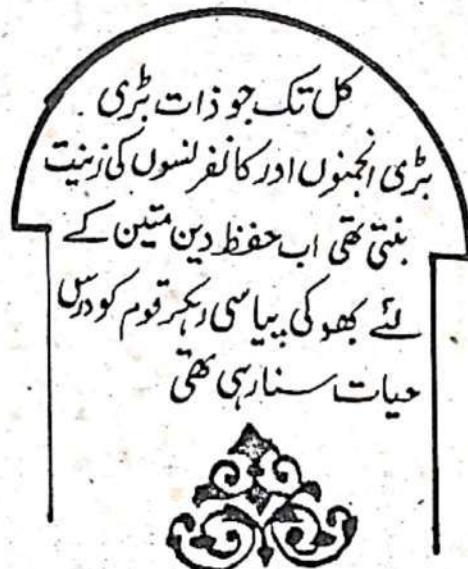 کل تک جو ذات بڑی
بڑی انجمنوں اور کانفرنسوں کی زینت
بنتی تھی اب حفظ دین متین کے
لئے بھوکی پیاسی رہکر قوم کو درس
حیات سنارہی تھی